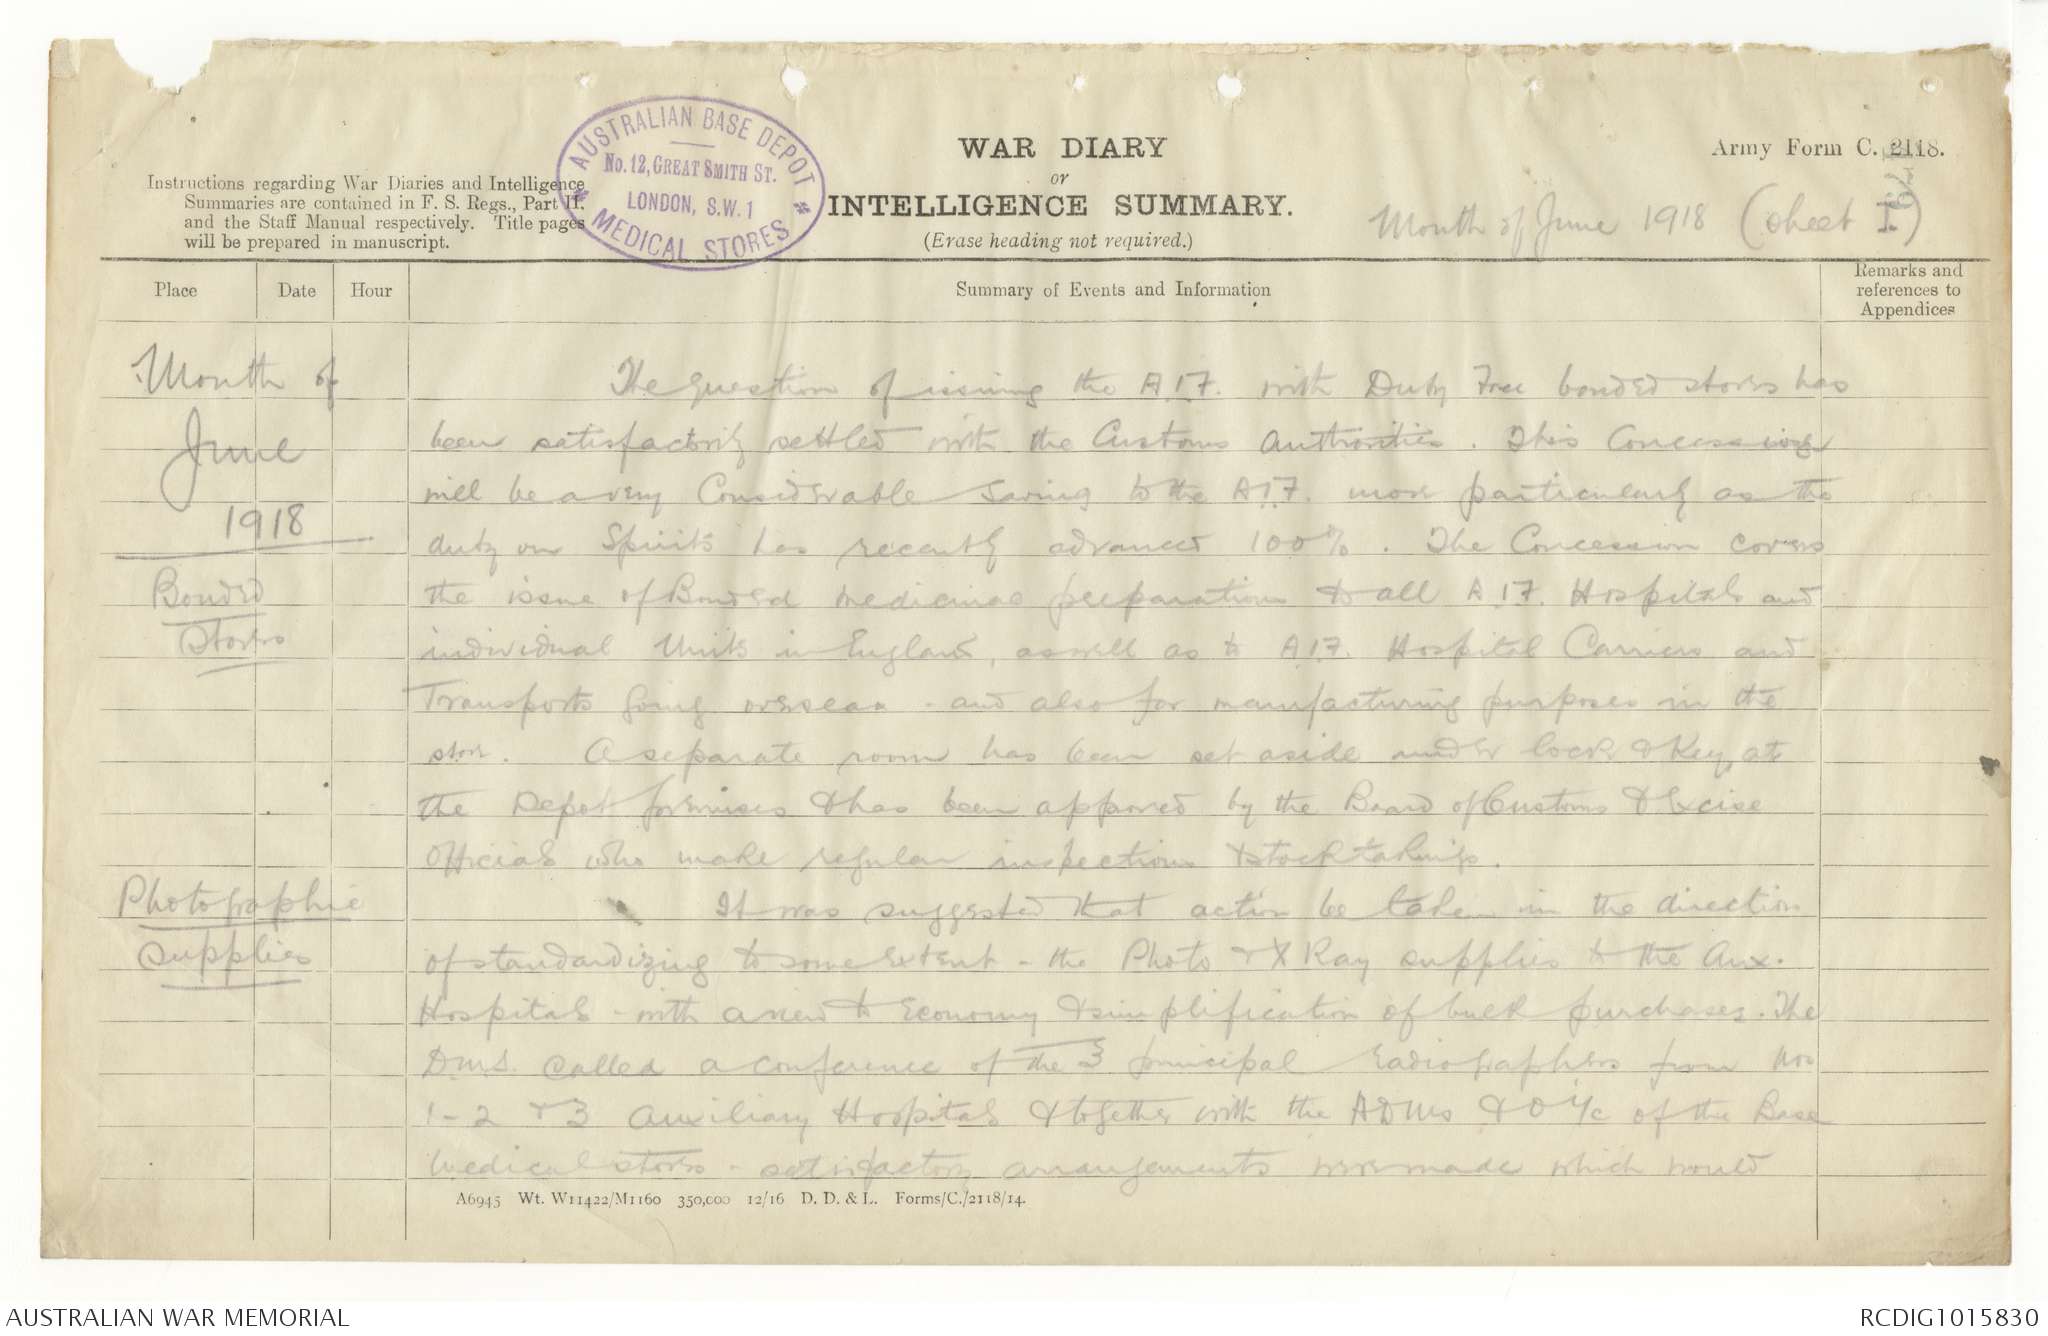 AUSTRALIAN BASE DEPOT
No. 12, GREAT SMITH ST.
LONDON, S.W.1
MEDICAL STORES
WAR DIARY
or
INTELLIGENCE SUMMARY.
(Erase heading not required.)
Army Form C. 2118.
Instructions regarding War Diaries and Intelligence
Summaries are contained in F. S. Regs., Part II.
and the Staff Manual respectively. Title pages
will be prepared in manuscript.
Month of June 1918 (Sheet I.)
Place
Date
Hour
Summary of Events and Information
Remarks and
references to
Appendices
Month of
June
1918
The question of issuing the A.I.F. with Duty Free bonded stores has
been satisfactorily settled with the Customs Authorities. This Concession
will be a very Considerable saving to the A.I.F. more particularly as the
duty on Spirits has recently advanced 100%. The Concession covers
Bonded
Stores
the issue of Bonded medicinal preparations to all A.I.F. Hospitals and
individual Units in England, as well as to A.I.F. Hospital Carriers and
Transports going overseas - and also for manufacturing purposes in the
store. A separate room has been set aside under lock & key, at
the Depot premises & has been approved by the Board of Customs & Excise
Officials who make regular inspections & stocktakings.
Photographic
Supplies
It was suggested that action be taken in the direction
of standardizing to some extent - the Photo & X Ray supplies to the Aux.
Hospitals - with a view to Economy & simplification of bulk purchases. The
D.M.S. called a conference of the 3 principal Radiographers from Nos
1 - 2 & 3 Auxiliary Hospitals & together with the ADMS & O i/c of the Base
Medical Stores - satisfactory arrangements were made which would
A6945 Wt. W11422/M1160 350,000 12/16 D. D. & L. Forms/C./2118/14.
AUSTRALIAN WAR MEMORIAL
RCDIG1015830